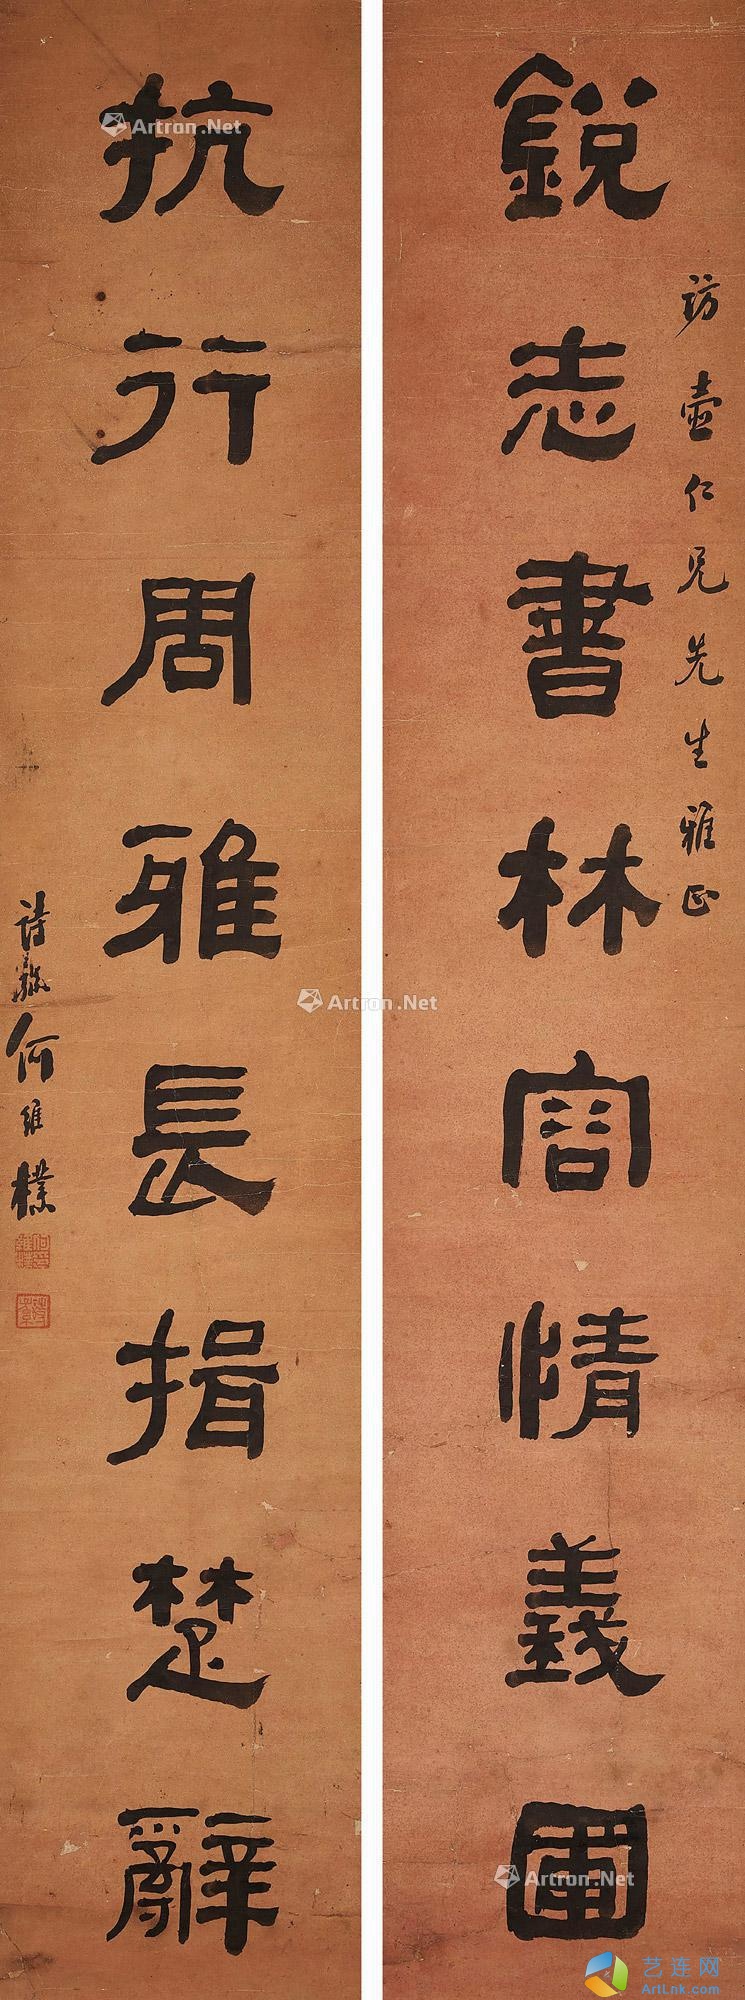 訪壺仁兄先生雅正
銳志書林容情義圃
抗行周雅長揖楚辭
詩孫何維樸
Artron.Net
Artron.Net
Artron.Net
艺连网
ArtLnk.com